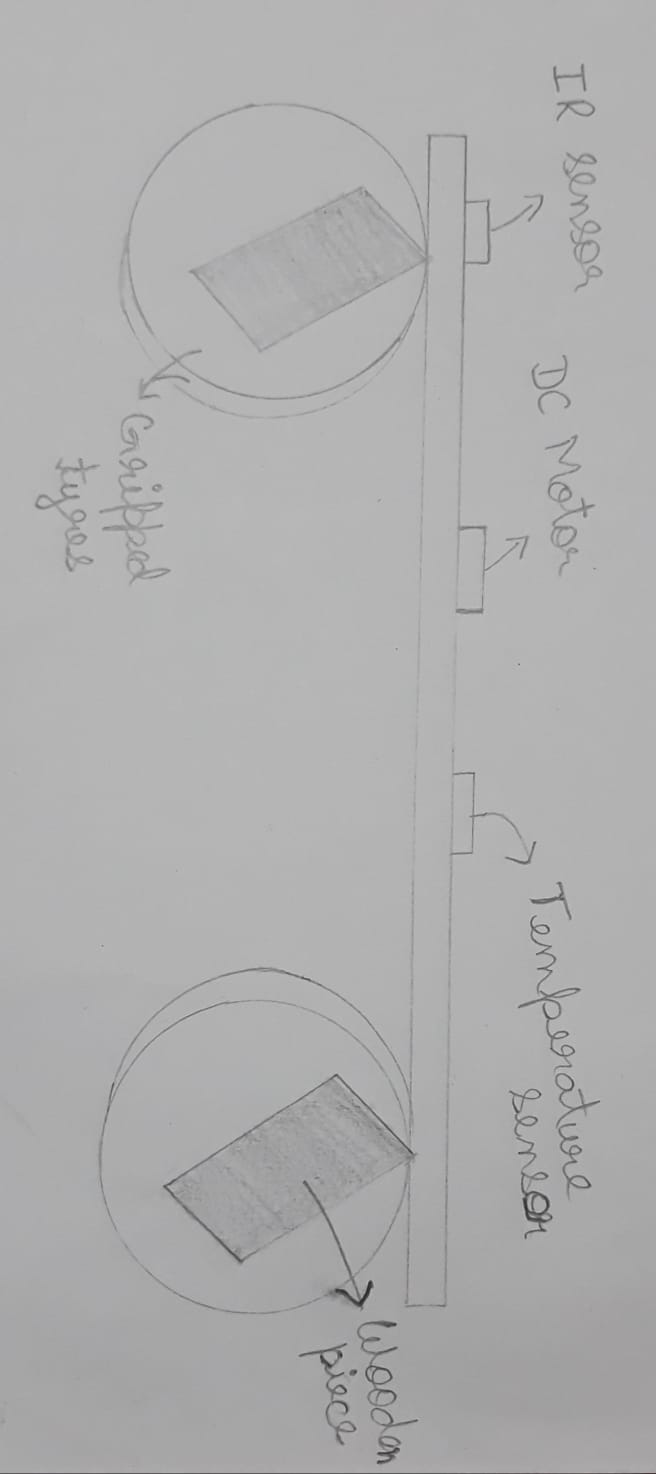 IR sensor
DC Motor
Temperature
sensor
Wooden
piece
Gripped
tyres